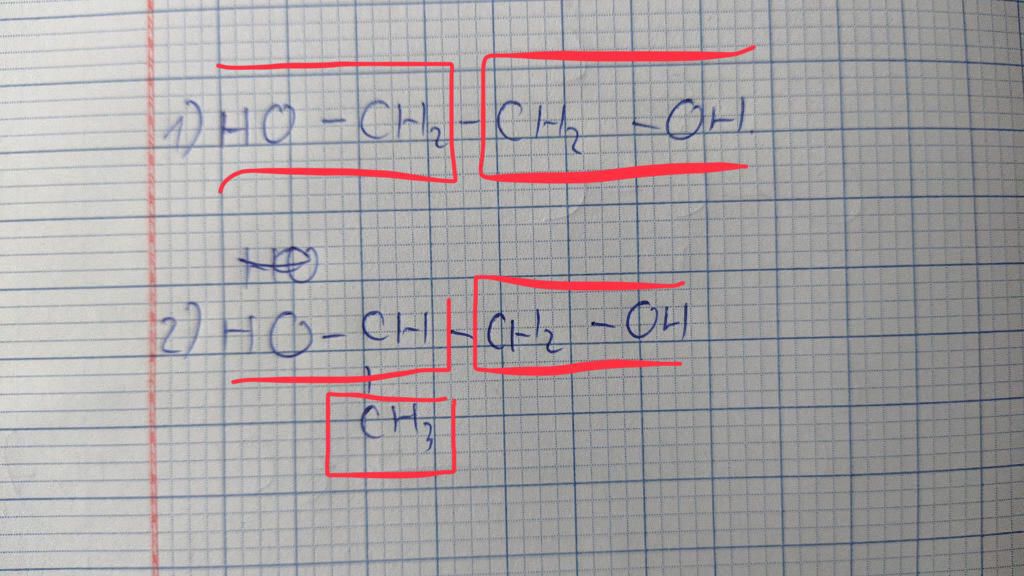 1) HO - CH₂ - CH₂ - OH.
HO
2) HO - CH - CH₂ - OH
CH₃